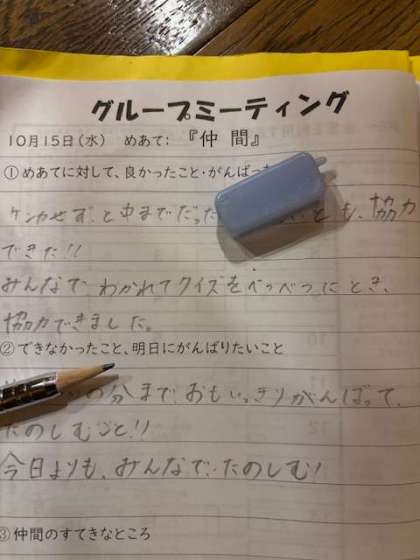 グループミーティング
10月15日(水) めあて: 『仲間』
①めあてに対して、良かったこと・がんばった
ケンカせず、と中までだった とも、協力
できた!!
みんなで、わかれてクイズをべつべつにとき、
協力できました。
②できなかったこと、明日にがんばりたいこと
の分まで、おもいっきりがんばって、
たのしむこと!!
今日よりも、みんなで、たのしむ!
③仲間のすてきなところ